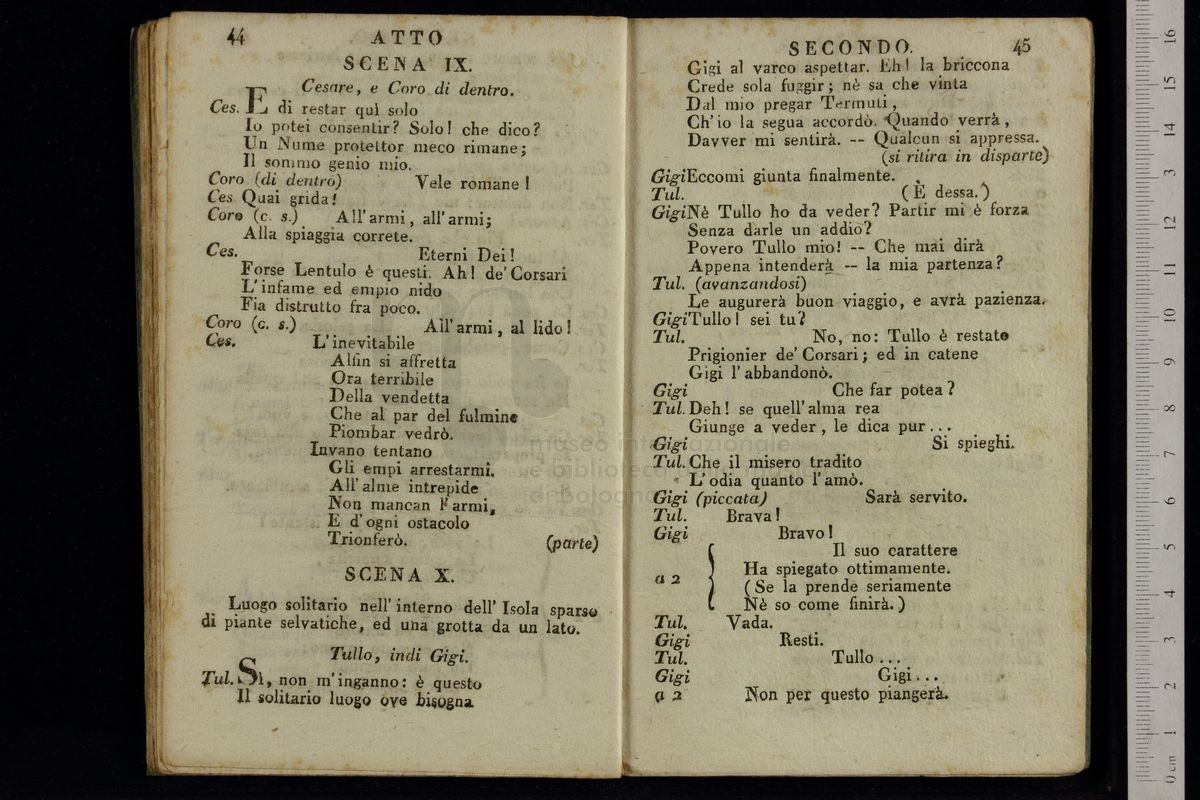 44
ATTO
SCENA IX.
Cesare, e Coro di dentro.
Ces. E di restar quì solo
Io potei consentir? Solo! che dico?
Un Nume protettor meco rimane;
Il sommo genio mio.
Coro (di dentro) Vele romane!
Ces Quai grida!
Coro (c. s.) All'armi, all'armi;
Alla spiaggia correte.
Ces. Eterni Dei!
Forse Lentulo è questi. Ah! de' Corsari
L'infame ed empio nido
Fia distrutto fra poco.
Coro (c. s.) All'armi, al lido!
Ces. L'inevitabile
Alfin si affretta
Ora terribile
Della vendetta
Che al par del fulmine
Piombar vedrò.
Invano tentano
Gli empi arrestarmi.
All'alme intrepide
Non mancan l'armi,
E d'ogni ostacolo
Trionferò. (parte)
SCENA X.
Luogo solitario nell'interno dell'Isola sparso
di piante selvatiche, ed una grotta da un lato.
Tullo, indi Gigi.
Tul. Sì, non m'inganno: è questo
Il solitario luogo ove bisogna
SECONDO.
45
Gigi al varco aspettar. Eh! la briccona
Crede sola fuggir; nè sa che vinta
Dal mio pregar Termuti,
Ch'io la segua accordò. Quando verrà,
Davver mi sentirà. -- Qualcun si appressa.
(si ritira in disparte)
Gigi Eccomi giunta finalmente.
Tul. (È dessa.)
Gigi Nè Tullo ho da veder? Partir mi è forza
Senza darle un addio?
Povero Tullo mio! -- Che mai dirà
Appena intenderà -- la mia partenza?
Tul. (avanzandosi)
Le augurerà buon viaggio, e avrà pazienza.
Gigi Tullo! sei tu?
Tul. No, no: Tullo è restato
Prigionier de' Corsari; ed in catene
Gigi l'abbandonò.
Gigi Che far potea?
Tul. Deh! se quell'alma rea
Giunge a veder, le dica pur...
Gigi Si spieghi.
Tul. Che il misero tradito
L'odia quanto l'amò.
Gigi (piccata) Sarà servito.
Tul. Brava!
Gigi Bravo!
Il suo carattere
Ha spiegato ottimamente.
a 2
(Se la prende seriamente
Nè so come finirà.)
Tul. Vada.
Gigi Resti.
Tul. Tullo...
Gigi Gigi...
a 2 Non per questo piangerà.